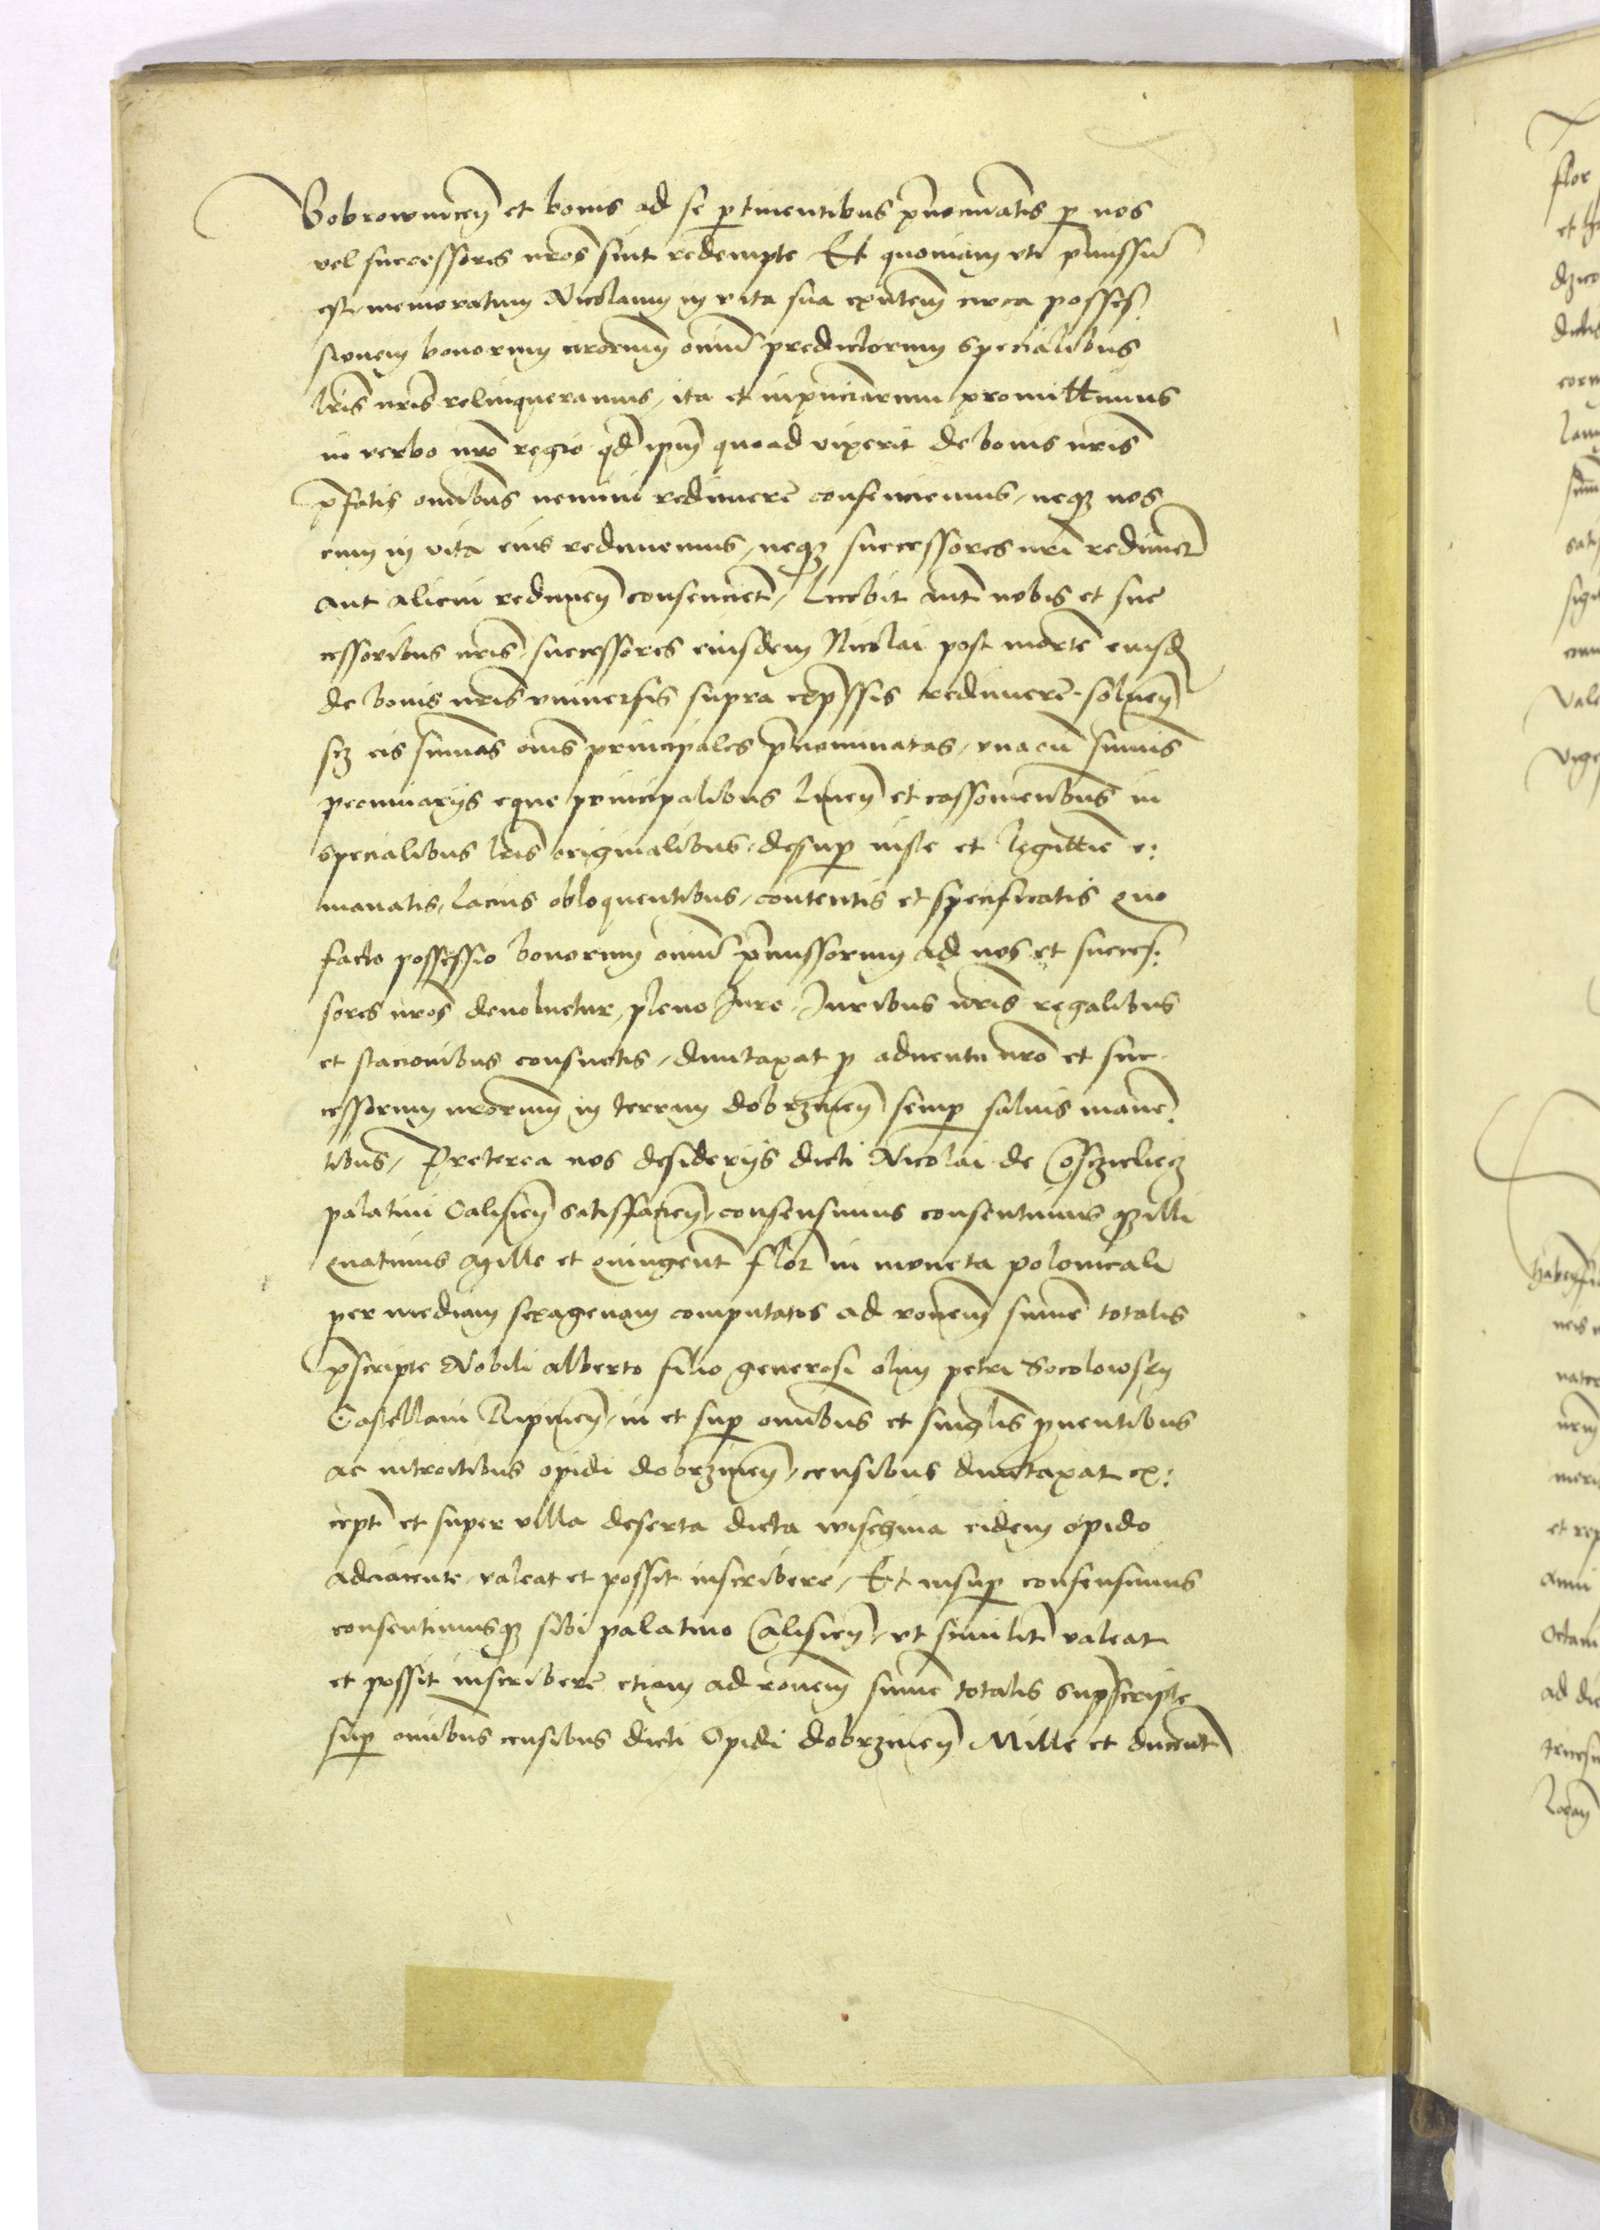 Bobrownicen̄ et bonis ad se p̱tinentibus p̄nōiatis p̱ nos
vel successores nr̄os sint redempte Et quoniam vti p̄missū
est, memoratum Nicolaum in vita sua exn̄tem circa posses:
sionem bonorum nr̄orum om̄iū predictorum specialibus
lr̄is nr̄is relinqueramus, ita et inp̄nciarum promittimus
in verbo nr̄o regio qd̄ ip̄m quoad vixerit de bonis nr̄is
p̄fatis om̄ibus nemini redimere consenciemus, neqʒ nos
eum in vita eius redimemus, neqʒ successores nr̄i redimer̄
aut alicui redimen̄ consencient, Licebit aut̄ nobis et suc
cessoribus nr̄is, successores eiusdem Nicolai post mortē eiusd̄
de bonis nr̄is vniuersis supra exp̄ssis redimere, soluen̄
sʒ eis summas om̄es principales p̄nominatas, vnacū summis
pecuniarijs eque principalibus in specialibus lr̄is originalibus, desup̱ iuste et legittime e:
manatis, lacius obloquentibus, contentis et specificatis quo
facto possessio bonorum om̄iū p̄missorum ad nos et succes:
sores nr̄os deuoluetur, pleno Jure, Juribus nr̄is regalibus
et stacionibus consuetis, duntaxat p̱ aduentu nr̄o et suc
cessorum nr̄orum in terram dobrzinen̄ semp̱ saluis manē:
tibus, Preterea nos desiderijs dicti Nicolai de Cosczielecz
palatini Calisien̄ satisfacien̄, consensimus consentimusqʒ illi
quatinus Mille et quingent̄ flor̄ in moneta polonicali
per mediam sexagenam computatos ad ronem̄ summe totalis
p̄scripte Nobili alberto filio generosi olim petri Socolowsky
Castellani Ripinen̄, in et sup̱ om̄ibus et singl̄is p̱uentibus
ac introitibus opidi dobrzinen̄, censibus duntaxat ex:
cept̄ et super villa deserta dicta wischina eidem opido
adiacente, valeat et possit inscribere, Et insup̱ consensimus
consentimusqʒ sibi palatino Calisien̄, vt similit̄ valeat
et possit inscribere etiam ad ronem̄ summe totalis sup̱scripte
sup̱ om̄ibus censibus dicti Opidi dobrzinen̄ Mille et ducent̄